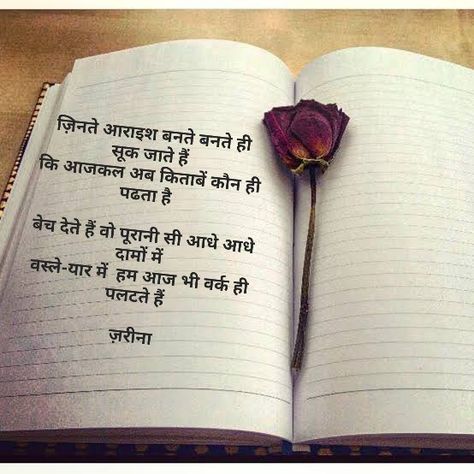 ज़िनते आराइश बनते बनते ही
सूक जाते हैं
कि आजकल अब किताबें कौन ही
पढता है
बेच देते हैं वो पूरानी सी आधे आधे
दामों में
वस्ले-यार में हम आज भी वर्क ही
पलटते हैं
ज़रीना